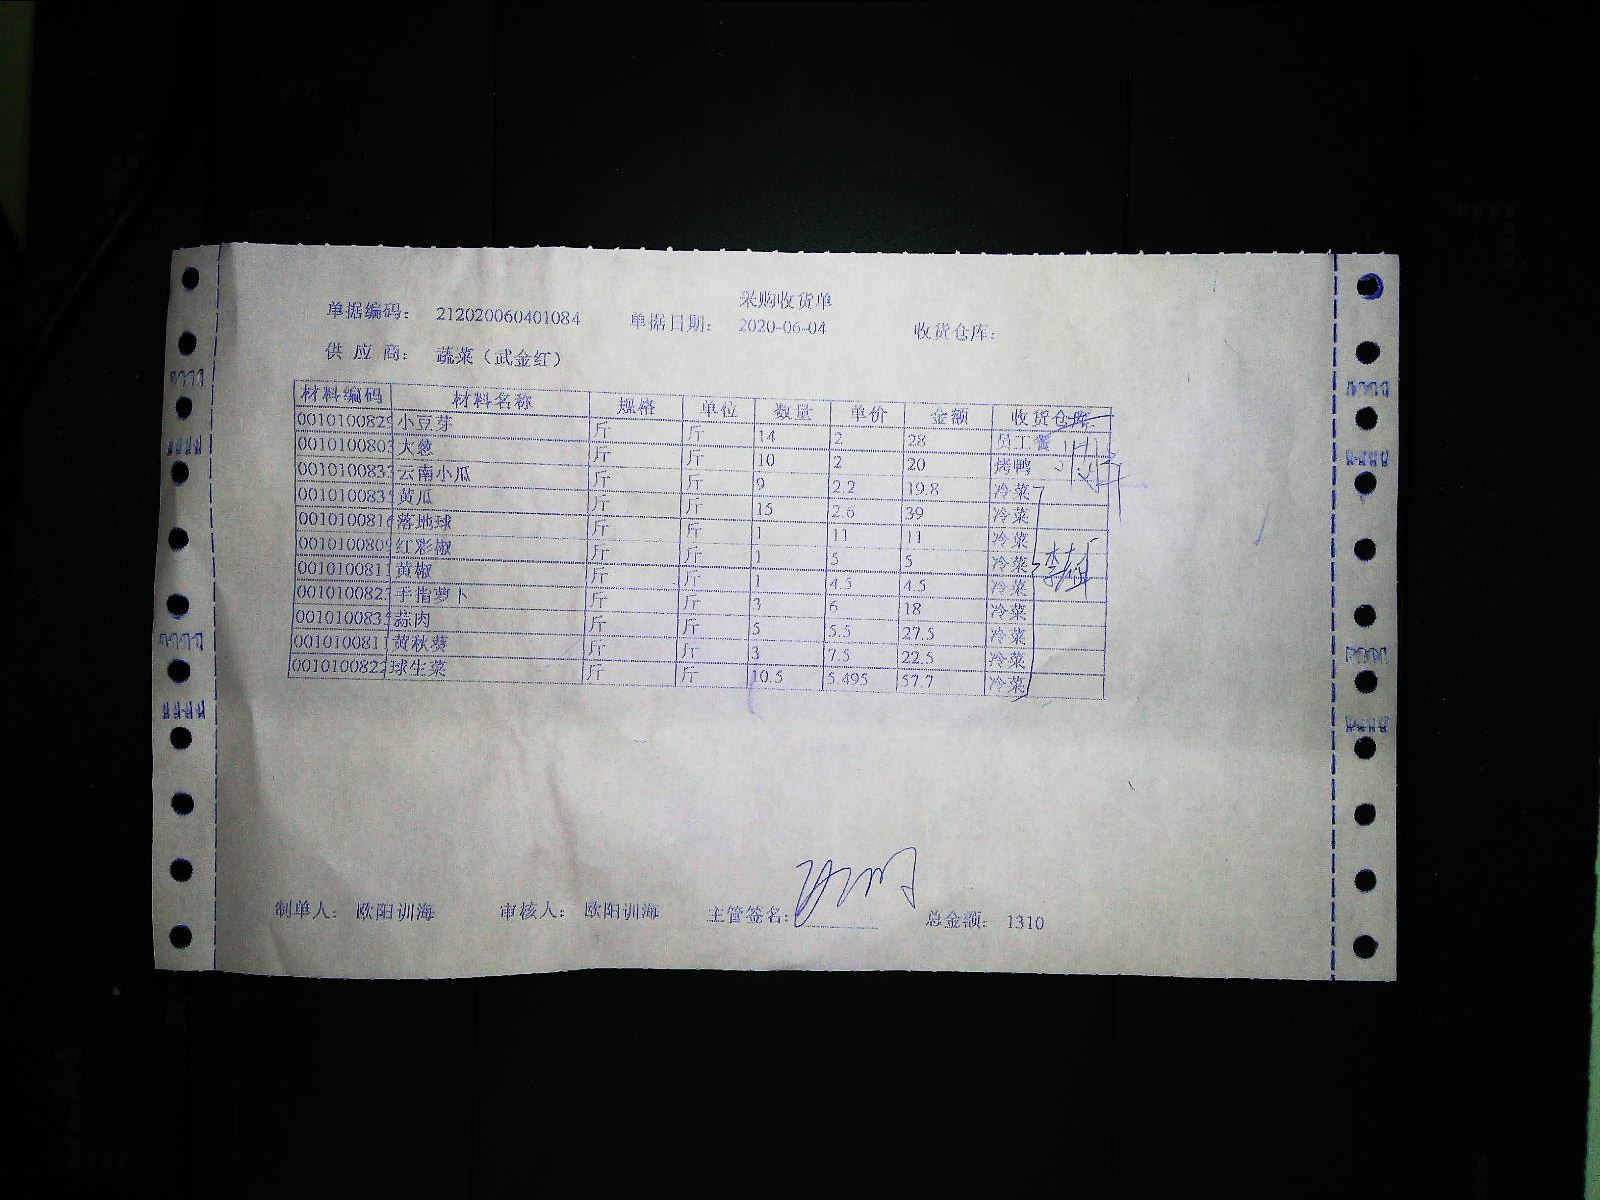 采购收货单
单据编码： 212020060401084 单据日期： 2020-06-04 收货仓库：
供 应 商： 蔬菜（武金红）
材料编码 材料名称 规格 单位 数量 单价 金额 收货仓库
0010100829 小豆芽 斤 斤 14 2 28 员工餐
0010100803 大葱 斤 斤 10 2 20 烤鸭
001010083 云南小瓜 斤 斤 9 2.2 19.8 冷菜
001010083 黄瓜 斤 斤 15 2.6 39 冷菜
0010100816 落地球 斤 斤 1 11 11 冷菜
0010100809 红彩椒 斤 斤 1 5 5 冷菜
001010081 黄椒 斤 斤 1 4.5 4.5 冷菜
001010082 手指萝卜 斤 斤 3 6 18 冷菜
001010083 蒜肉 斤 斤 5 5.5 27.5 冷菜
001010081 黄秋葵 斤 斤 3 7.5 22.5 冷菜
001010082 球生菜 斤 斤 10.5 5.495 57.7 冷菜
制单人： 欧阳训海 审核人： 欧阳训海 主管签名： 总金额： 1310